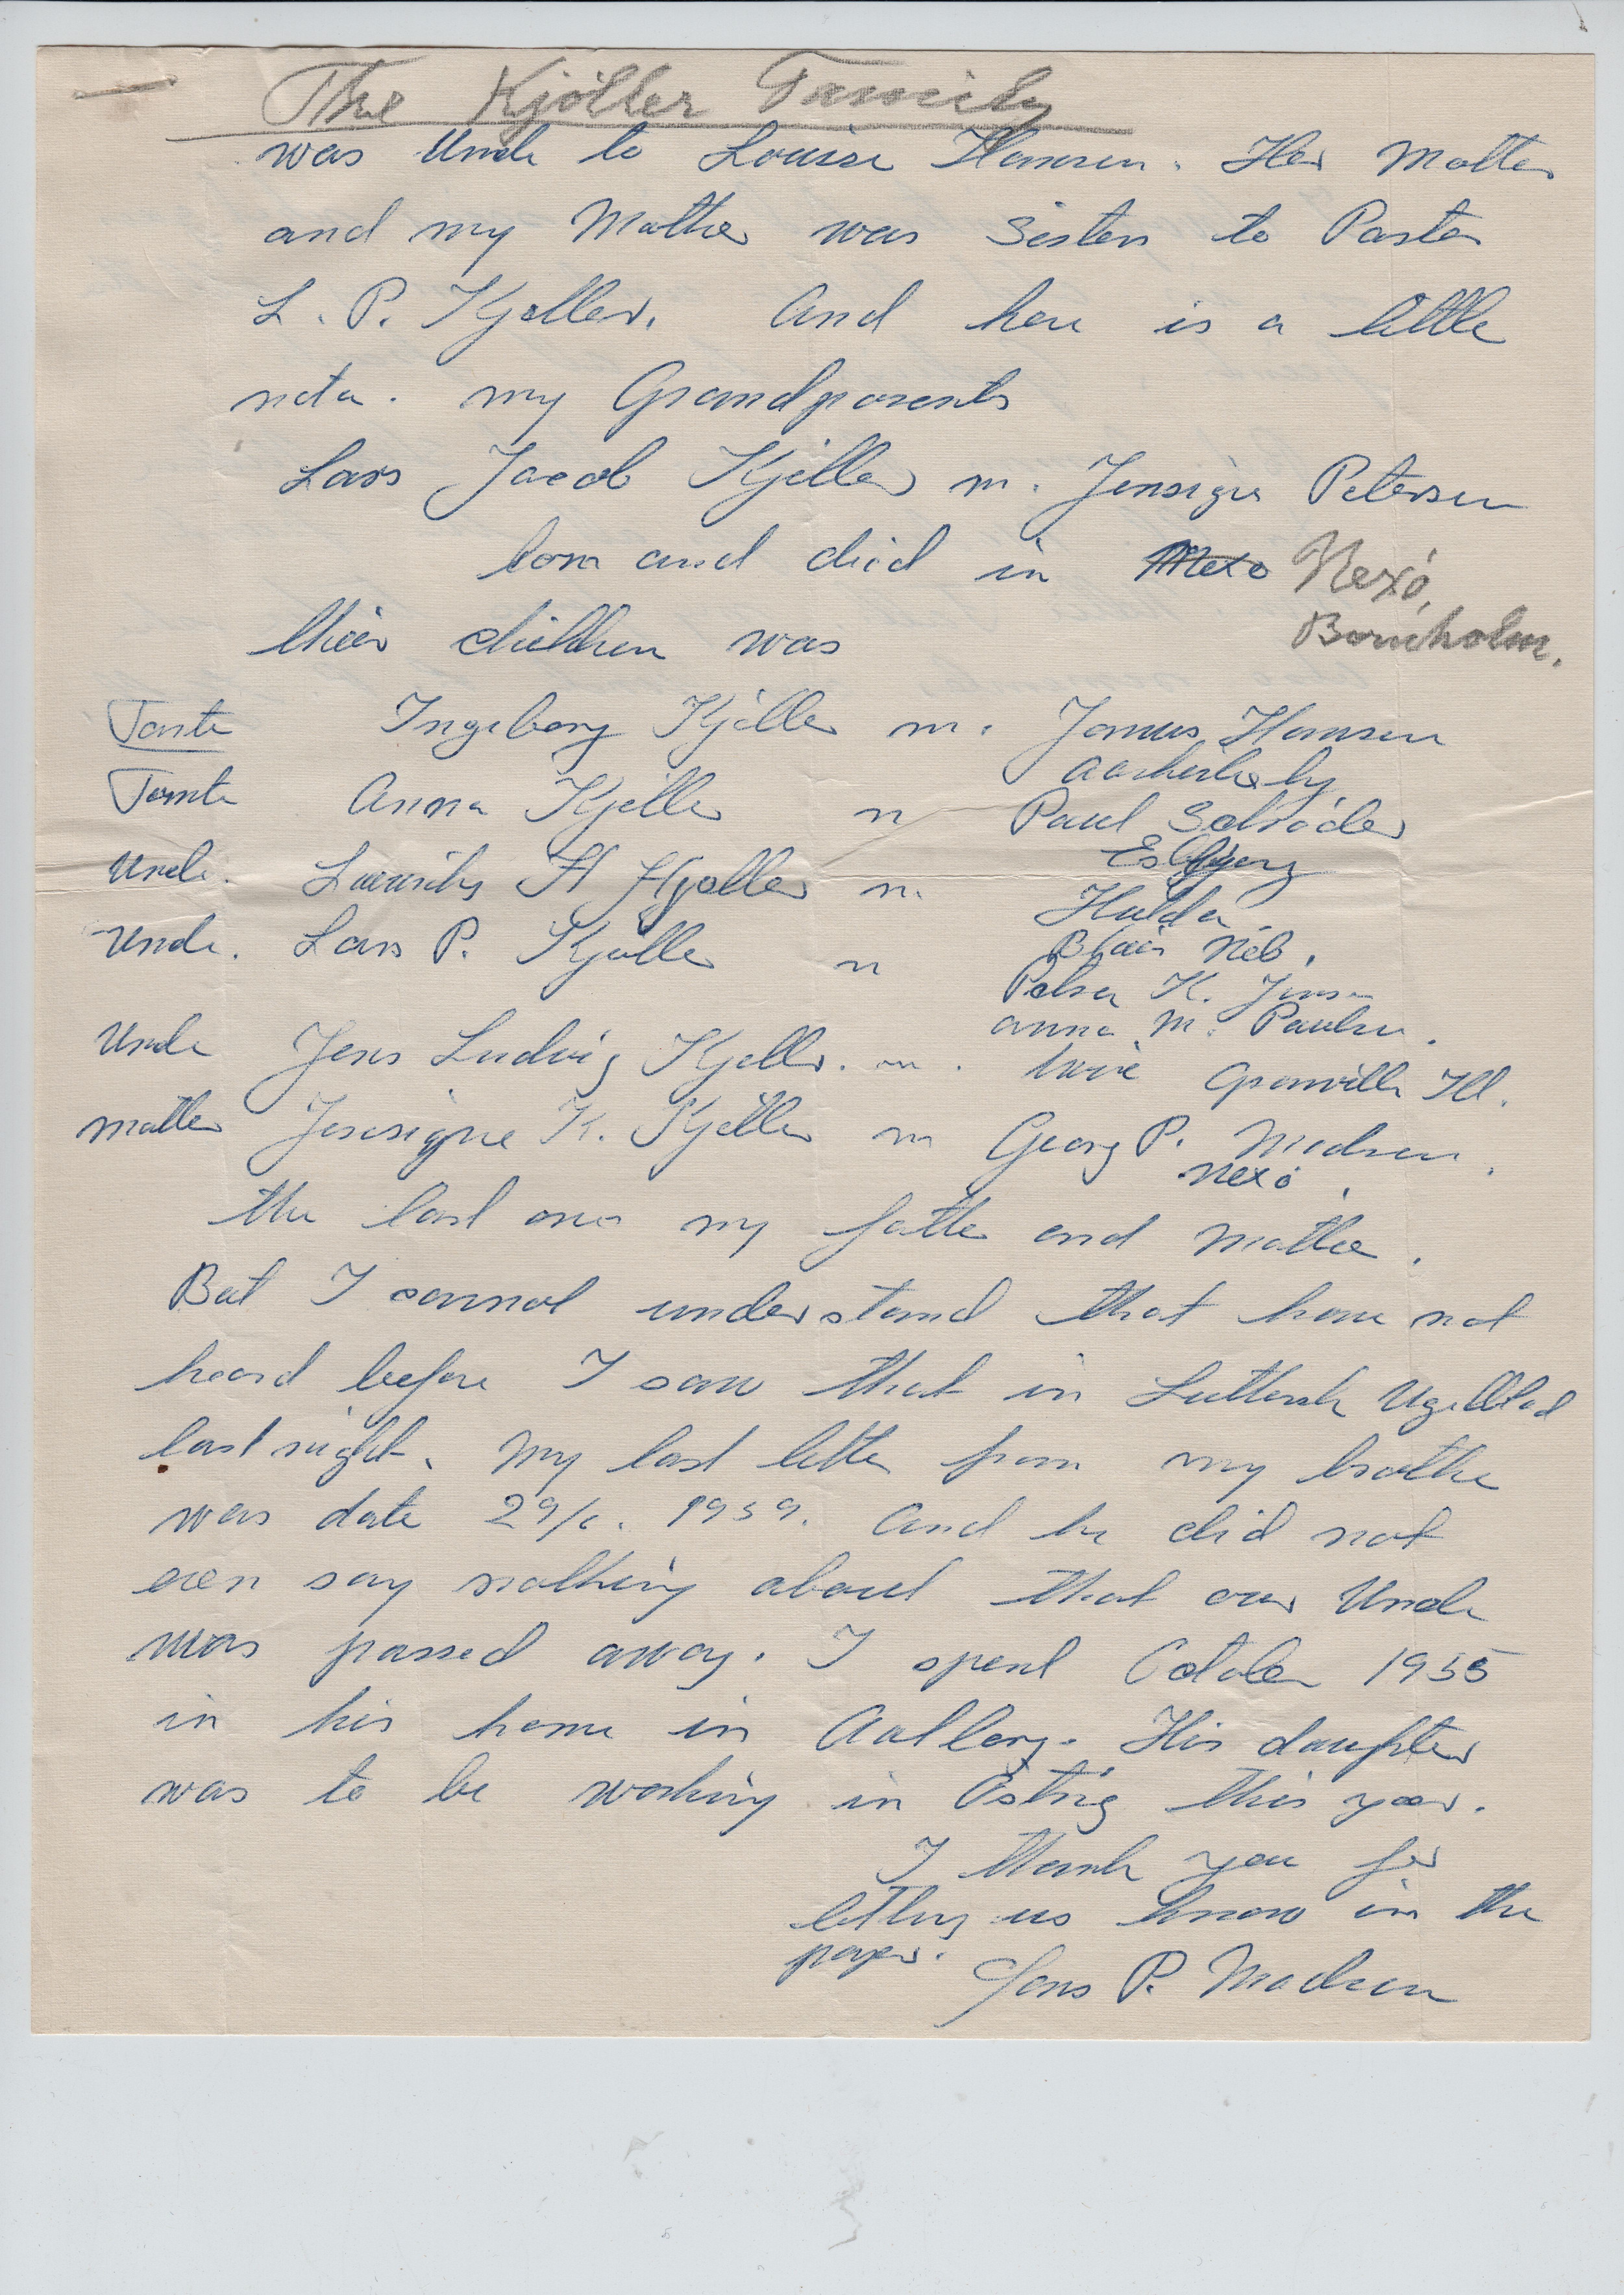 The Kjöller Family
was Uncle to Louise Hansen. Her Mother
and my Mother was Sisters to Pastor
L. P. Kjøller. And here is a little
note. my Grandparents
Lars Jacob Kjöller m. Jensigne Petersen
born and died in Mexo Nexö,
Bornholm.
thier children was
Tante Ingeborg Kjöller m. Janus Hansen
Aarkirkeby
Tante Anna Kjöller m Paul Schröder
Esbjerg
Uncle. H Kjøller m. Hulda
Blair Neb.
Uncle. Lars P. Kjöller m
K. Jensen
Anna M. Paulsen.
Uncle Jens Ludvig Kjöller. m. Granville Ill.
Mother Jensigne K. Kjöller m Georg P. Madsen.
Nexö.
the last one my father and Mother.
But I cannot understand that have not
heard before I saw that in Luthersk Ugeblad
last night. My last letter from my brother
was date 29/6. 1959. And he did not
even say nothing about that our Uncle
was passed away. I spent October 1955
in his home in Aalborg. His daughter
was to be working in Östrig this year.
I thank you for
letting us know in the
paper.
Jens P. Madsen